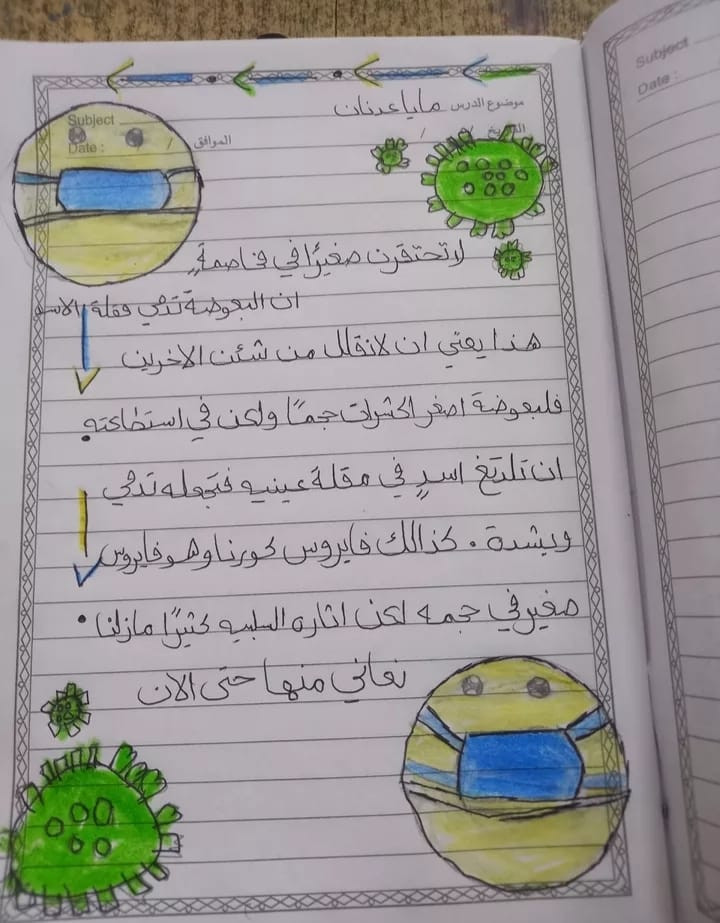 موضوع الدرس مايا عدنان
التاريخ / /
Subject
الموافق /
Date :
لا تحتقرن صغيرًا في فاصمةٍ
ان البعوضة تدمي مقلة الاسد
هذا يعني ان لا نقلل من شئن الاخرين
فلبعوضة اصغر الحشرات حجمًا ولكن في استطاعته
ان تلدغ اسدٍ في مقلة عينيه فتجعله تدمي
وبشدة . كذالك فايروس كورنا وهو فايروس
صغير في حجمه لكن اثاره السلبيه كثيرًا مازلنا
نعاني منها حتى الان
Subject
Date :